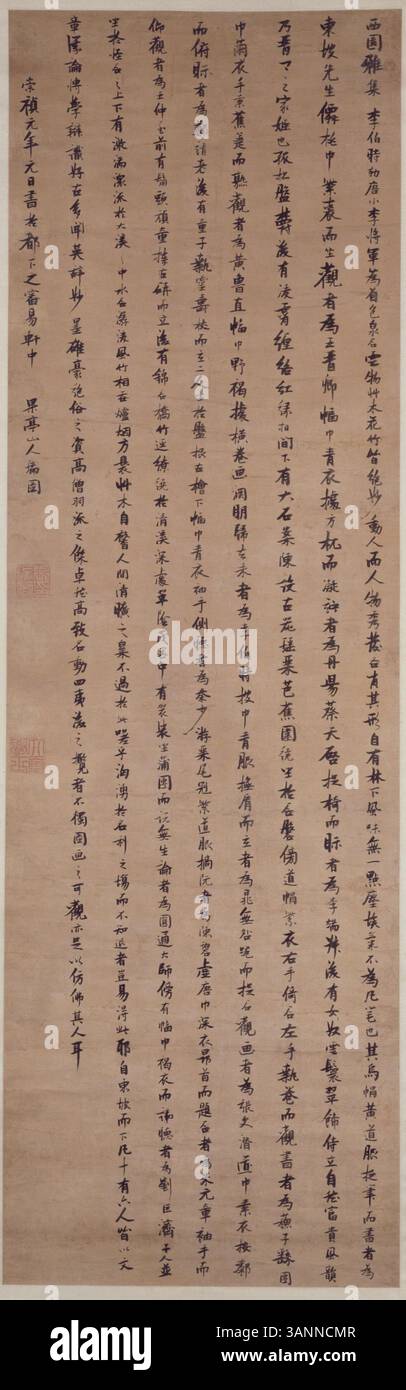 西園雅集 李伯時効唐小李將軍為着色泉石雲物艸木花竹皆絕妙動人而人物秀發各肖其形自有林下風味無一點塵埃氣不為凡筆也其烏帽黃道服捉筆而書者為
東坡先生僊桃巾紫裘而坐觀者為王晋卿幅巾青衣據方杌而凝竚者為丹陽蔡天啟捉椅而眎者為李端叔後有女奴雲鬟翠飾侍立自然富貴風韻
乃晋卿之家姬也孤松盤鬱後有凌霄纏絡紅綠相間下有大石案陳設古器瑤琴芭蕉圍繞坐於石磐傍道帽紫衣右手倚石左手執卷而觀書者為蘇子繇團
巾繭衣手秉蕉箑而熟觀者為黃魯直幅巾野褐據橫卷画淵明歸去來者為李伯時披巾青服撫肩而立者為晁無咎跪而捉石觀画者為張文潛道巾素衣按膝
而俯眎者為鄭靖老後有童子執靈壽杖而立二人坐於盤根古檜下幅巾青衣袖手側聽者為秦少游琴尾冠紫道服摘阮者為陳碧虛唐巾深衣昂首而題石者為米元章袖手而
仰觀者為王仲至前有鬅頭頑童捧古硯而立後有錦石橋竹逕繚繞於清溪深處翠陰茂密中有袈裟坐蒲團而說無生論者為圓通大師傍有幅巾褐衣而諦聽者為劉巨濟二人並
坐於怪石之上下有激湍潨流於大溪之中水石潺湲風竹相吞爐烟方裊艸木自馨人間清曠之樂不過於此嗟乎洶湧於名利之塲而不知退者豈易得此耶自東坡而下凡十有六人皆以文
章議論博學辨識好古多聞英辭妙墨雄豪絕俗之資高僧羽流之傑卓然高致名動四夷後之覽者不獨圖画之可觀亦足以仿佛其人耳
崇禎元年元日書於都下之審易軒中 果亭山人瑞圖
alamy
Image ID: 3ANNCMR
www.alamy.com